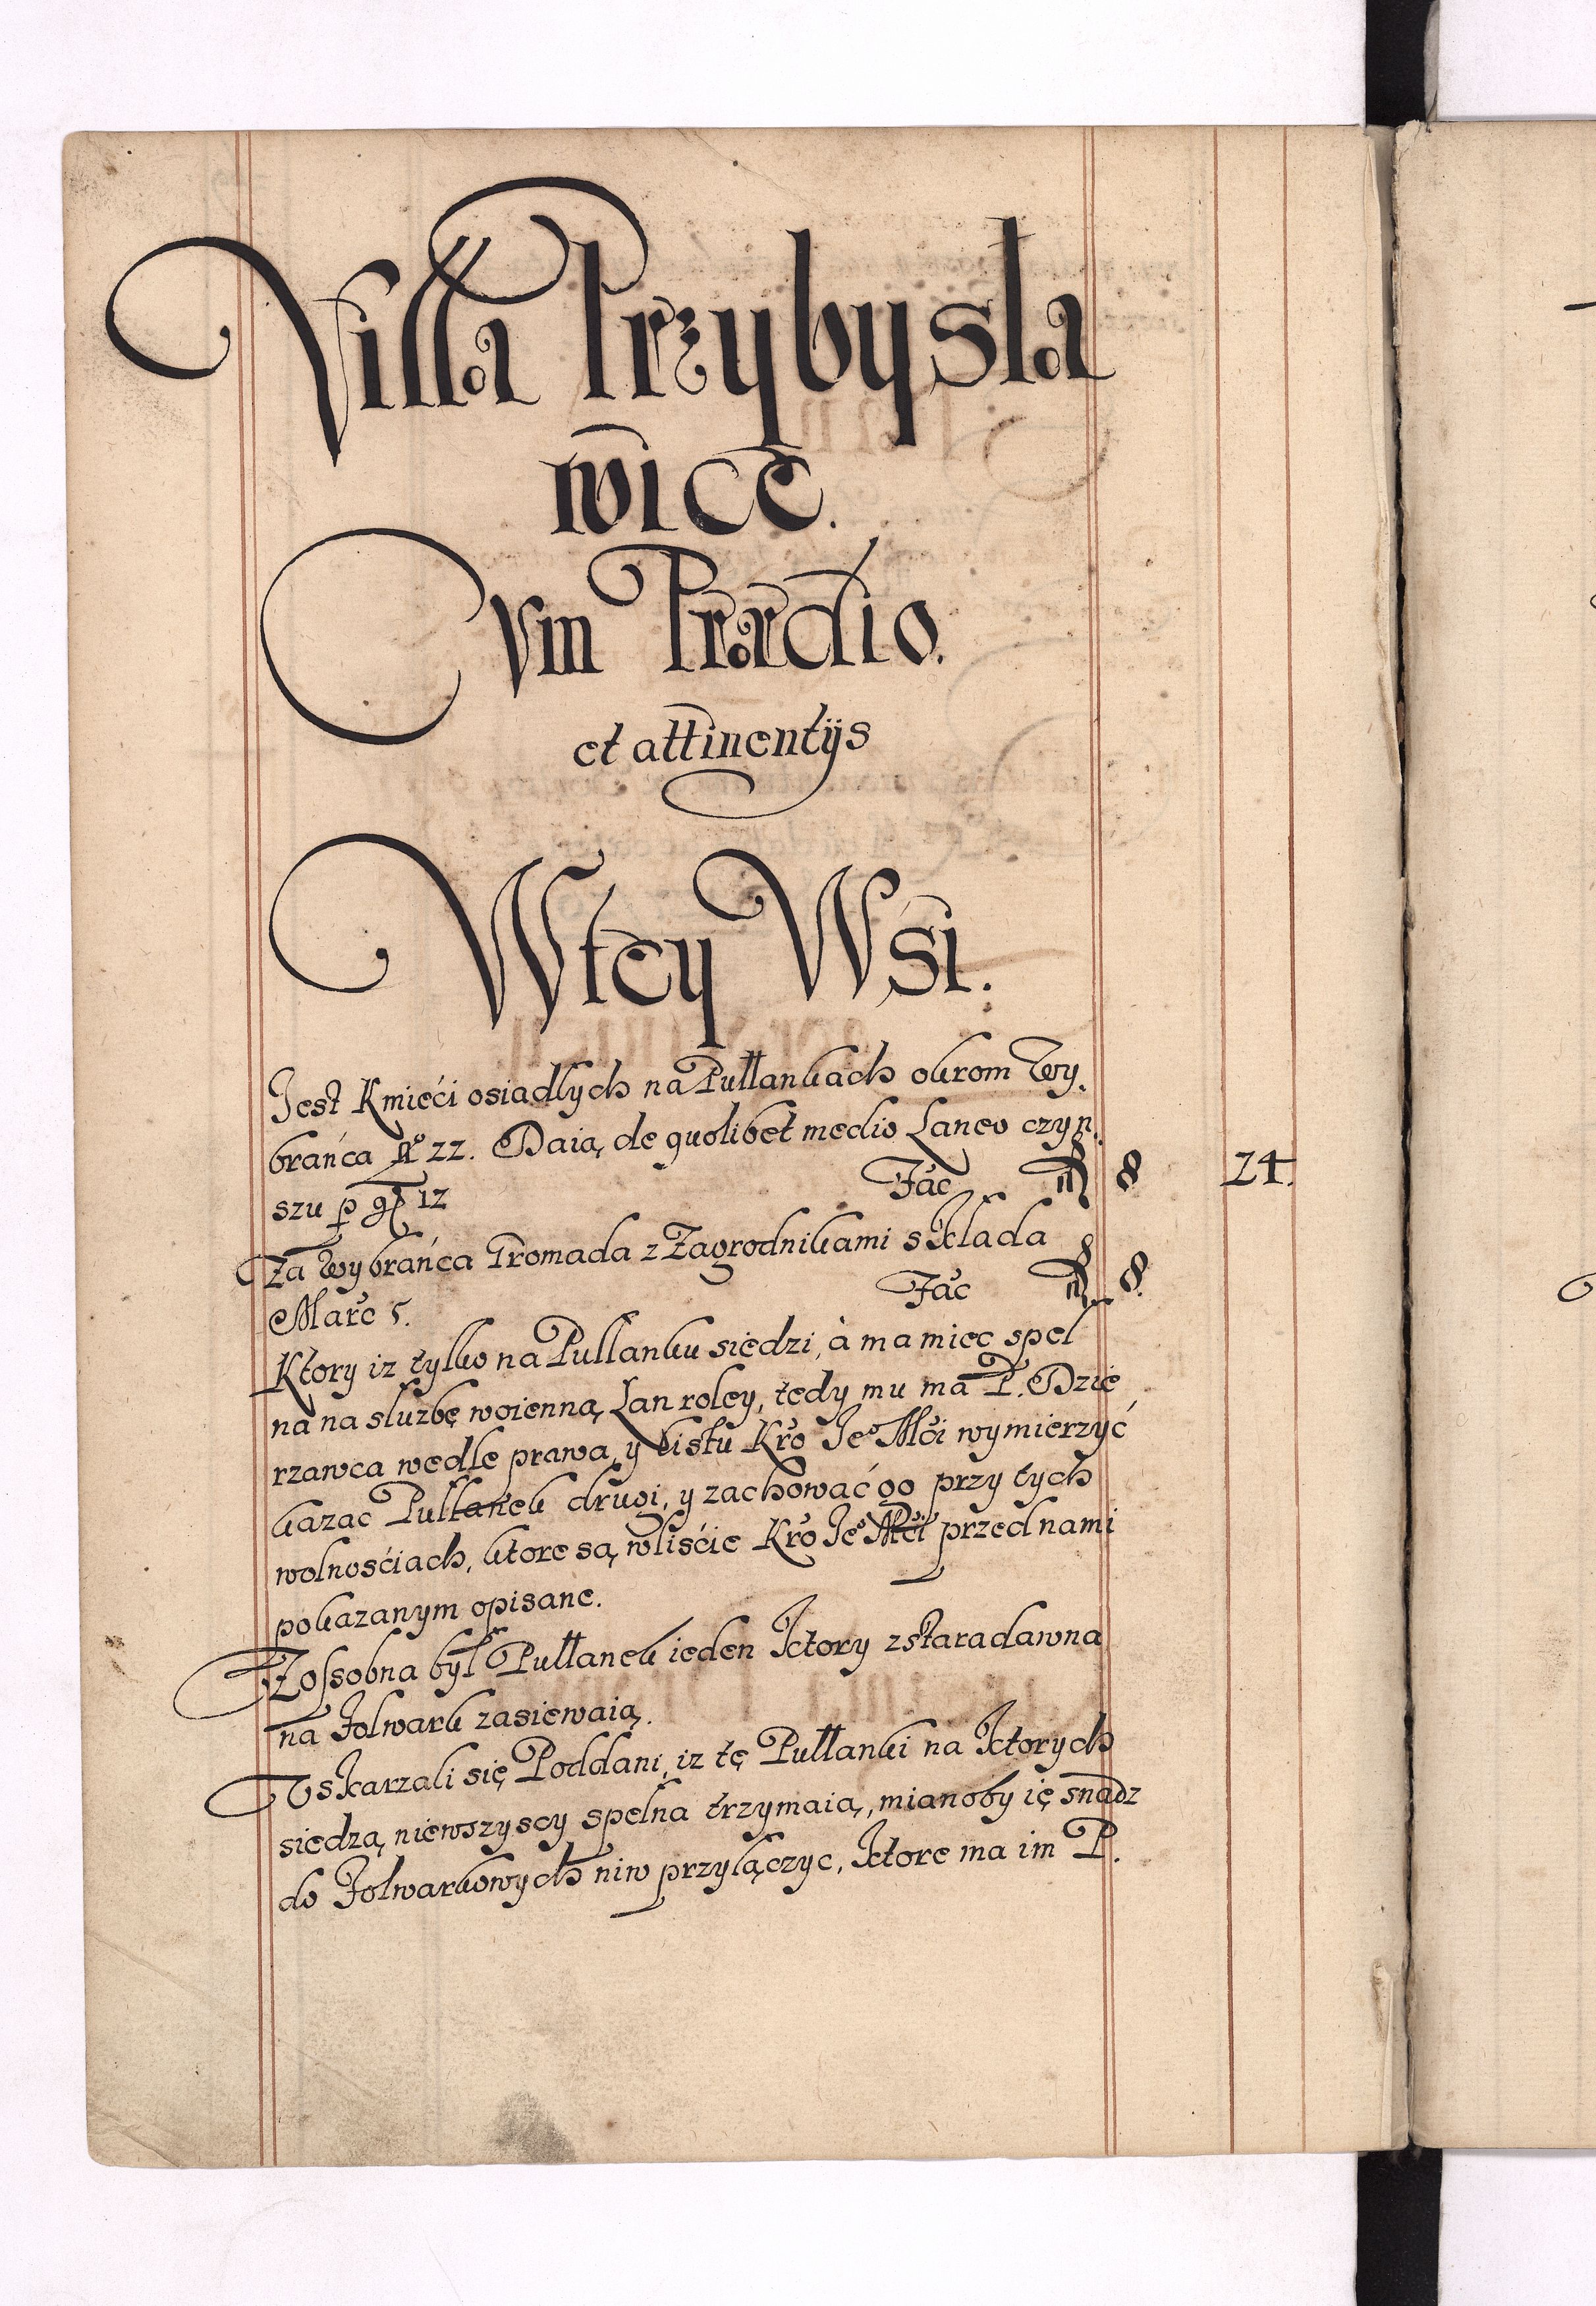 Villa Przybysła
wice.
Cum Prædio.
et attinentijs
W tey Wsi.
Jest Kmieći osiadłych na Pułłankach okrom Wy.
brańca No 22. Daią de quolibet medio Laneo czyn.
szu p gr 12 Fac 8 24.
Za Wybrańca Gromada z Zagrodnikami składa
Marc 5. Fac 8.
Ktory iz tylko na Pullanku siedzi, à ma miec spel
na na służbę woienną Łan roley, tedy mu ma P. Dzie
rzawca wedle prawa y Listu Kro Jeo Mći wymierzyć
kazac Pullanek drugi, y zachować go przy tych
wolnośćiach, ktore są wliśćie Kro Jeo Mći przed nami
pokazanym opisane.
Zossobna był Pułłanek ieden ktory zstaradawna
na folwark zasiewaią.
Uskarzali się Poddani, iz tę Pułłanki na ktorych
siedzą niewszyscy spełna trzymaią, mianoby ię snadz
do folwarkowych niw przyłączyc, ktore ma im P.